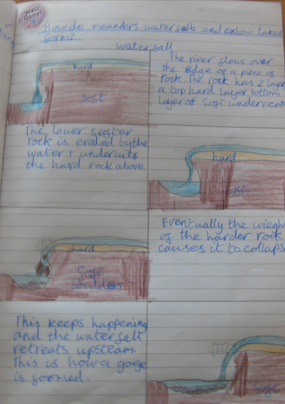 How do meanders waterfalls and oxbow lakes
form?
Waterfall
hard
Soft
The river flows over
the edge of a piece of
rock. The rock has 2 laye
a top hard layer bottom
layer of soft underneat
The lower softer
rock is eroded by the
water + undercuts
the hard rock above.
hard
Eventually the weigh
of the harder rock
causes it to collaps
hard
Soft
boulders
This keeps happening
and the waterfall
retreats upstream.
This is how a gorge
is formed.